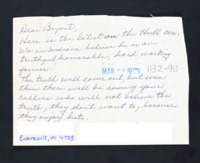 Dear Bryant,
Here is the latest on the thrill case.
We in Indiana believe he is an
truthful honorable, hard working
farmer.
MAR 11 1979
192-90
The truth will come out, but even
then there will be some
who will not believe the
truth, they don't want to, because
they enjoy hate.
Evansville, IN 47711